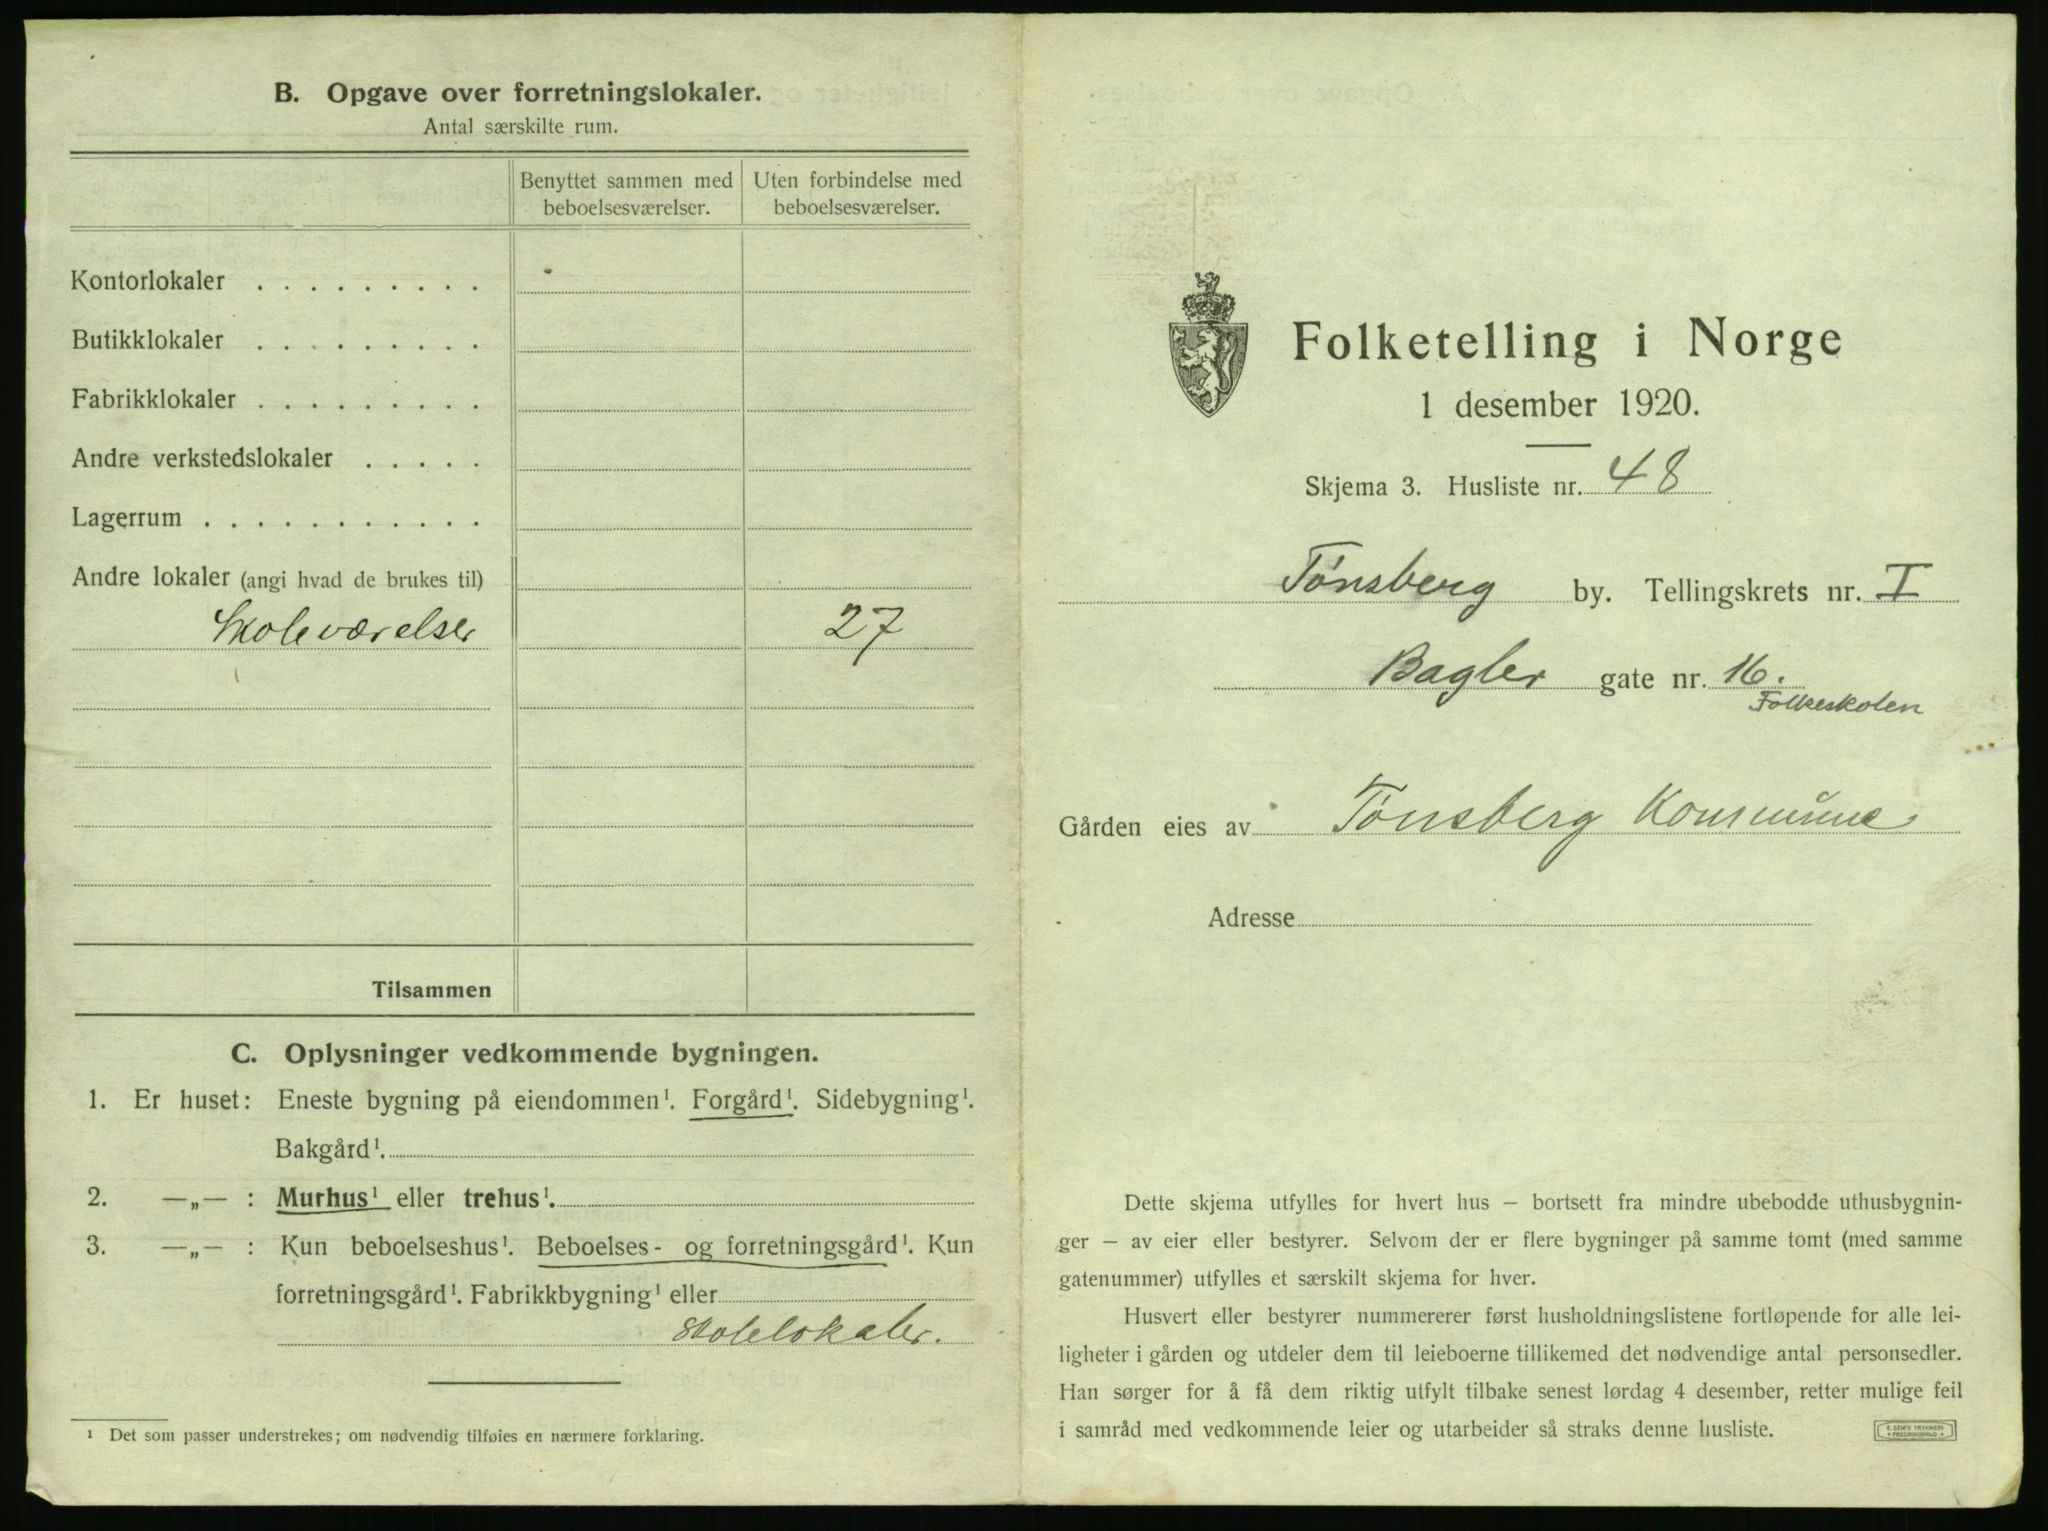 B. Opgave over forretningslokaler.
Antal særskilte rum.
Benyttet sammen med beboelsesværelser.
Uten forbindelse med beboelsesværelser.
Kontorlokaler . . . . . . . . .
Butikklokaler . . . . . . . . .
Fabrikklokaler . . . . . . . . .
Andre verkstedslokaler . . . . .
Lagerrum . . . . . . . . . . .
Andre lokaler (angi hvad de brukes til)
Skoleværelser 27
Tilsammen
C. Oplysninger vedkommende bygningen.
1. Er huset: Eneste bygning på eiendommen¹. Forgård¹. Sidebygning¹.
Bakgård¹.
2. —„— : Murhus¹ eller trehus¹.
3. —„— : Kun beboelseshus¹. Beboelses- og forretningsgård¹. Kun
forretningsgård¹. Fabrikkbygning¹ eller
Skolelokaler.
¹ Det som passer understrekes; om nødvendig tilføies en nærmere forklaring.
Folketelling i Norge
1 desember 1920.
Skjema 3. Husliste nr. 48
Tønsberg by. Tellingskrets nr. I
Bagler gate nr. 16.
Folkeskolen
Gården eies av Tønsberg Kommune
Adresse
Dette skjema utfylles for hvert hus – bortsett fra mindre ubebodde uthusbygnin-
ger – av eier eller bestyrer. Selvom der er flere bygninger på samme tomt (med samme
gatenummer) utfylles et særskilt skjema for hver.
Husvert eller bestyrer nummererer først husholdningslistene fortløpende for alle lei-
ligheter i gården og utdeler dem til leieboerne tillikemed det nødvendige antal personsedler.
Han sørger for å få dem riktig utfylt tilbake senest lørdag 4 desember, retter mulige feil
i samråd med vedkommende leier og utarbeider så straks denne husliste.
E. SEM'S TRYKKERI
FREDRIKSHALD